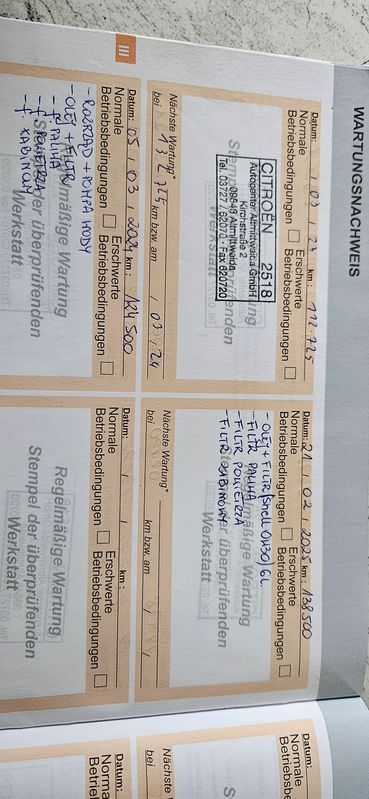 WARTUNGSNACHWEIS
Datum: / 03 / 23 km: 112.725
Normale Erschwerte
Betriebsbedingungen Betriebsbedingungen
CITROËN 2518
Autocenter Altmittweida GmbH
Kirchstraße 2
09648 Altmittweida
Tel. 03727 / 62070 · Fax 620720
Nächste Wartung*
bei 132.725 km bzw. am / 03 / 24
Datum: 21 / 02 / 2025 km: 138500
Normale Erschwerte
Betriebsbedingungen Betriebsbedingungen
-OLEJ + FILTR/Shell 0W30/6L
-FILTR PALIWA
-FILTR POWIETRZA
-FILTR KABINOWY
Regelmäßige Wartung
Stempel der überprüfenden
Werkstatt
Nächste Wartung*
bei km bzw. am / /
III
Datum: 05 / 03 / 2024 km: 124 500
Normale Erschwerte
Betriebsbedingungen Betriebsbedingungen
-ROZRZĄD + POMPA WODY
-OLEJ + FILTR
-f. PALIWA
-f. POWIETRZA
-f. KABINOWY
Regelmäßige Wartung
Stempel der überprüfenden
Werkstatt
Datum: / / km:
Normale Erschwerte
Betriebsbedingungen Betriebsbedingungen
Regelmäßige Wartung
Stempel der überprüfenden
Werkstatt
Datum:
Norma
Betrieb
Nächste
bei
Datum:
Norma
Betrieb